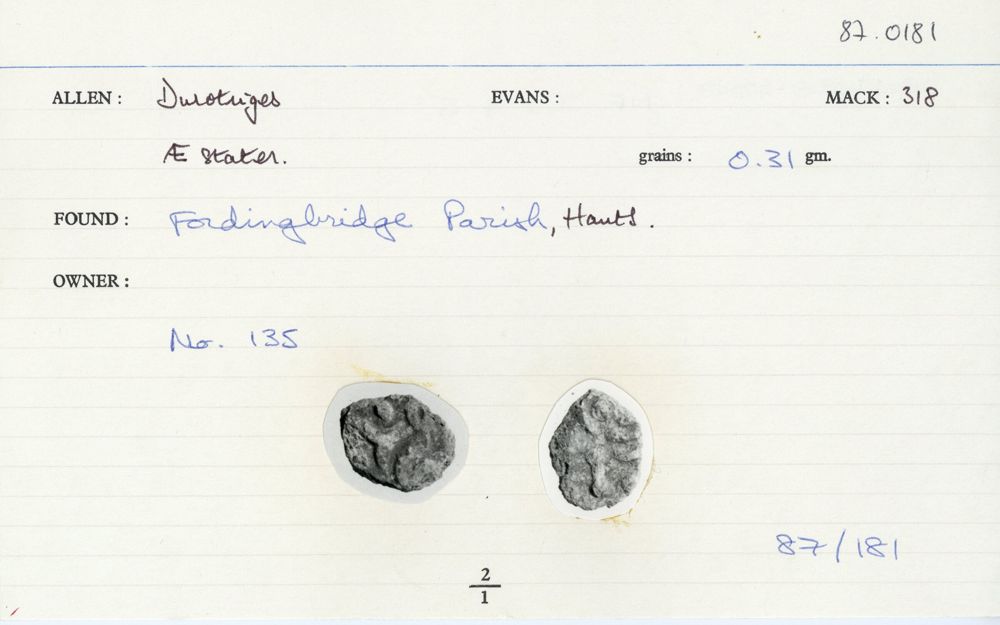 87.0181
ALLEN : Durotriges EVANS : MACK : 318
Æ stater. grains : 0.31 gm.
FOUND : Fordingbridge Parish, Hants.
OWNER :
No. 135
87/181
2
1